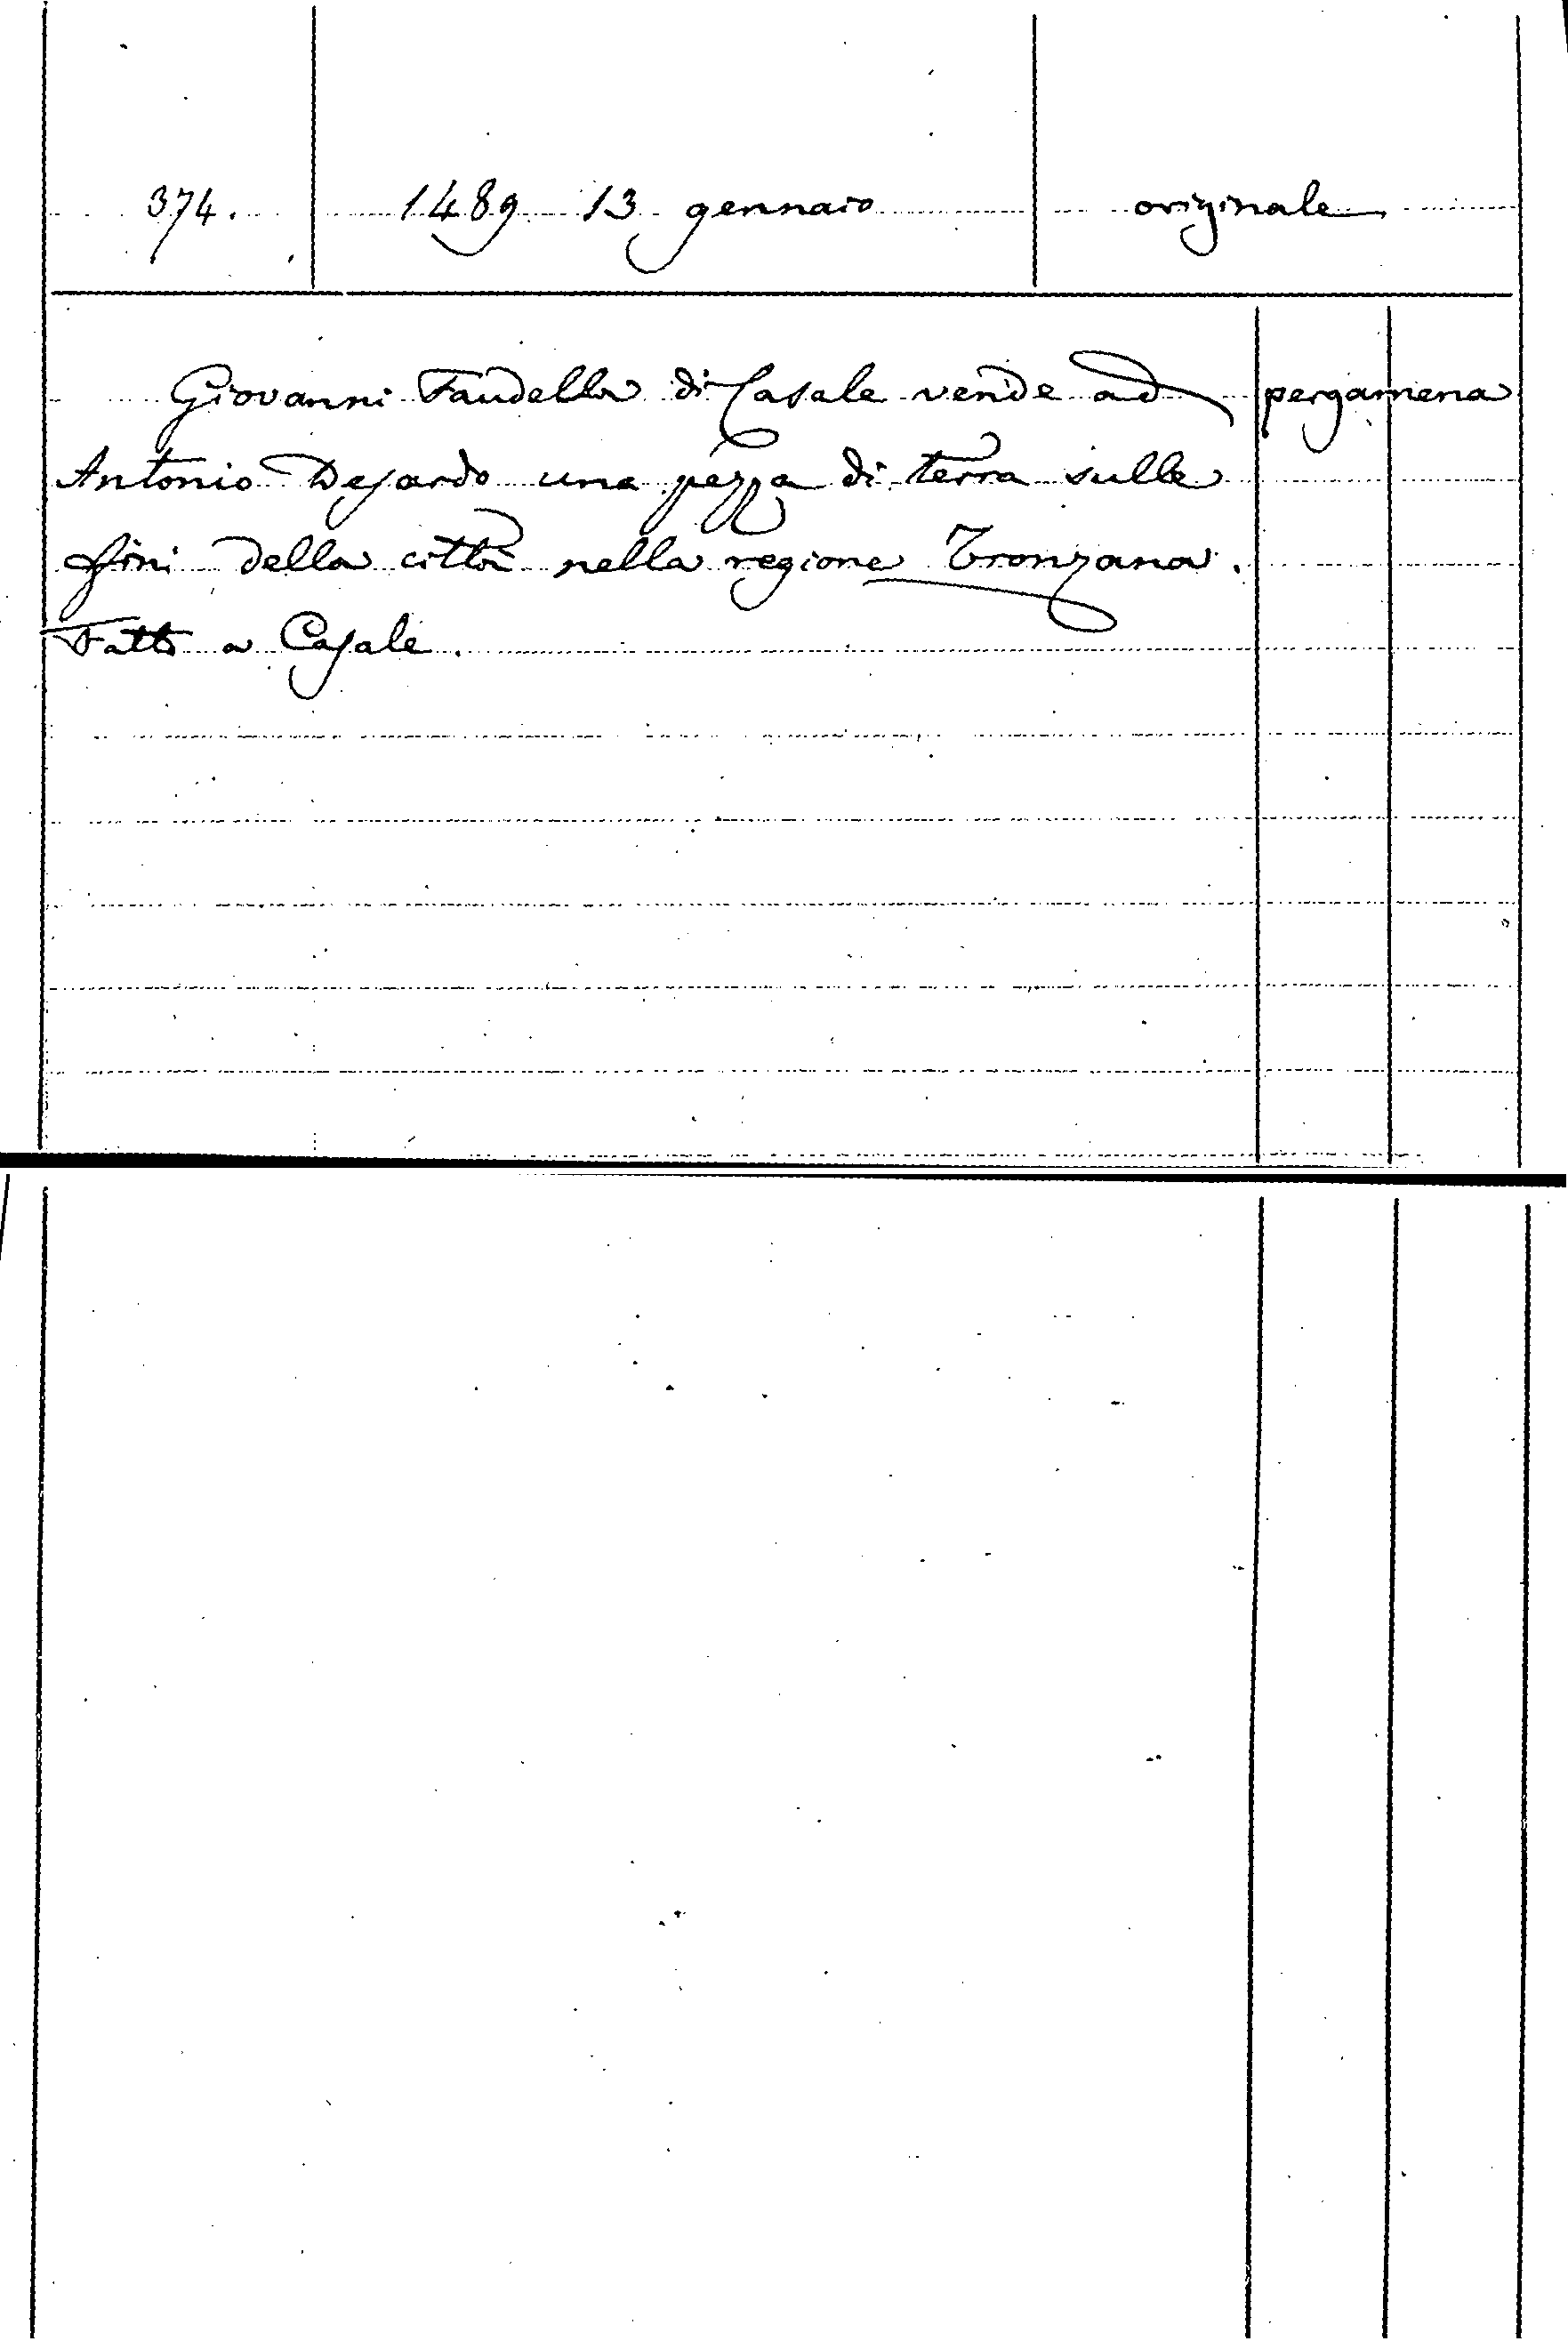 374. 1489 13 gennaio originale
Giovanni Faudella di Casale vende ad pergamena
Antonio Desardo una pezza di terra sulle
fini della città nella regione Tronzana.
Fatto a Casale.